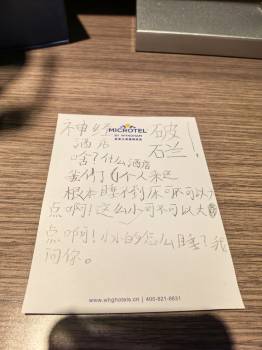 神经 破
MICROTEL
BY WYNDHAM
酒店 石兰！
啥了什么酒店
个人来这
根本睡不到床可不可以大
点啊！这么小可不可以大
点啊！小小的怎么睡了我
问你。
www.whghotels.cn | 400-821-6631